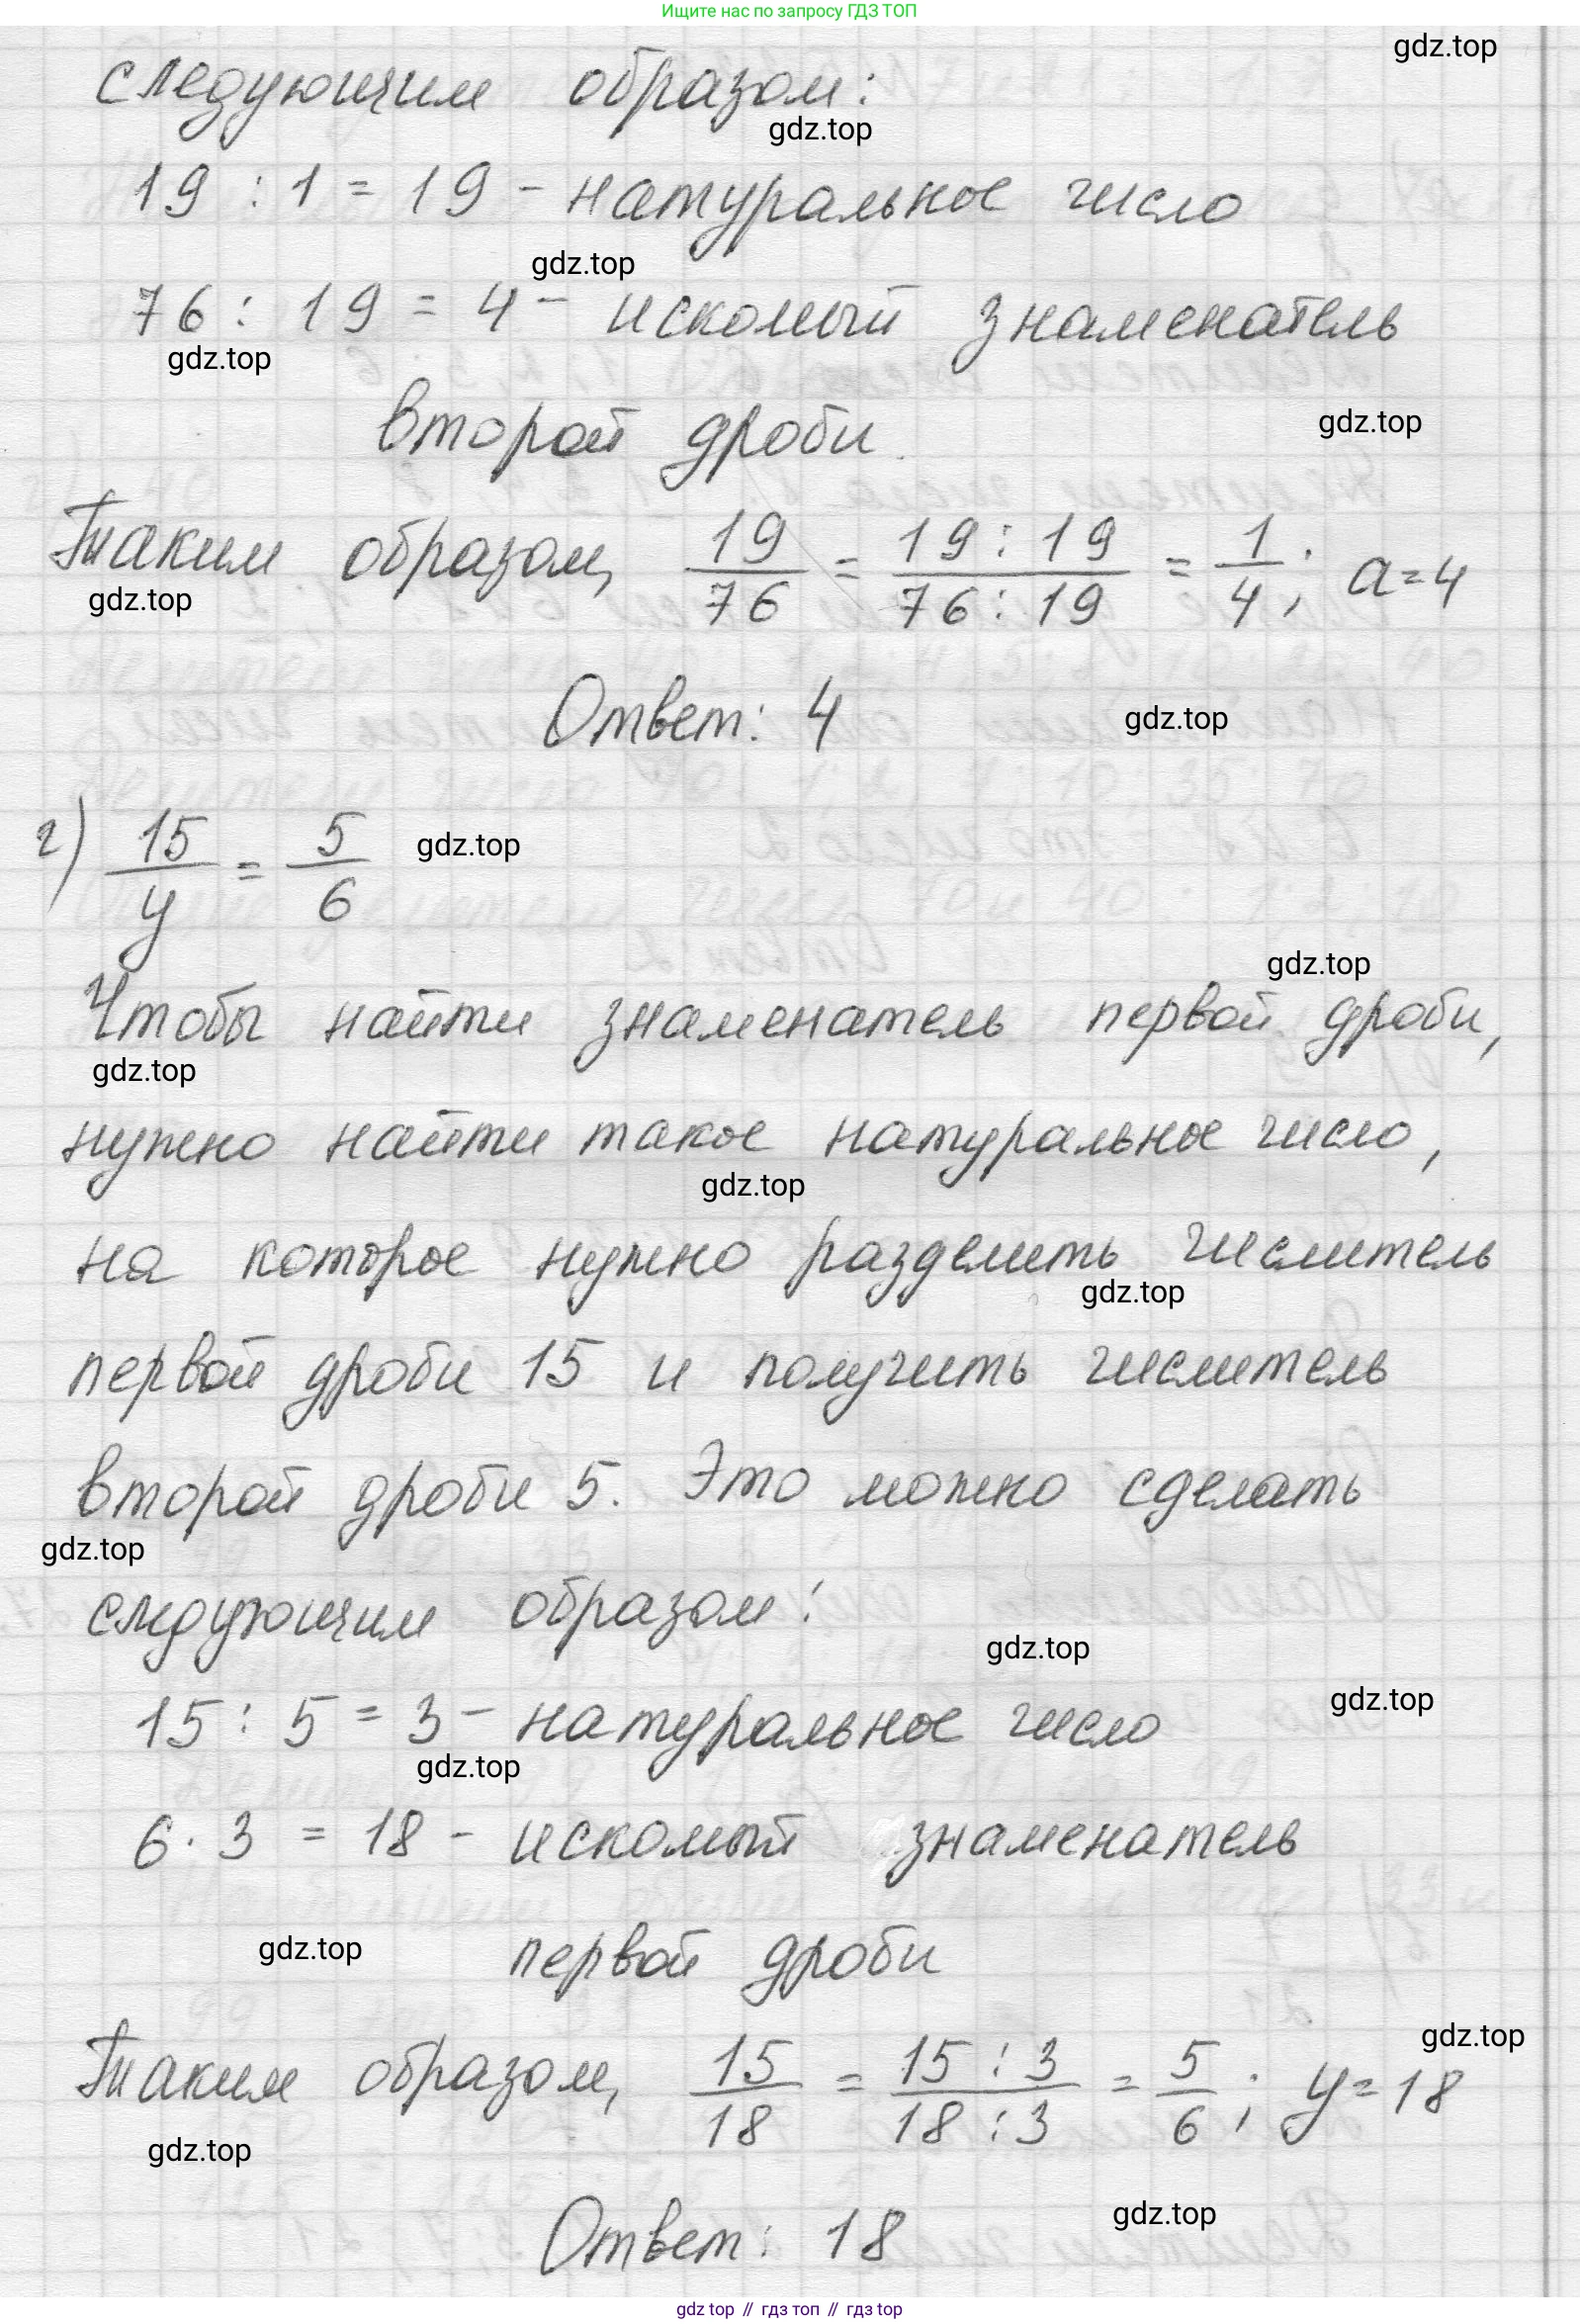 Ищите нас по запросу ГДЗ ТОП
gdz.top
следующим образом:
gdz.top
19 : 1 = 19 - натуральное число
gdz.top
76 : 19 = 4 - искомый знаменатель
gdz.top
второй дроби.
gdz.top
Таким образом, 19/76 = 19 : 19/76 : 19 = 1/4; a = 4
gdz.top
Ответ: 4
gdz.top
г) 15/y = 5/6
gdz.top
gdz.top
Чтобы найти знаменатель первой дроби,
gdz.top
нужно найти такое натуральное число,
gdz.top
на которое нужно разделить числитель
gdz.top
первой дроби 15 и получить числитель
второй дроби 5. Это можно сделать
gdz.top
следующим образом:
gdz.top
gdz.top
15 : 5 = 3 - натуральное число
gdz.top
6 · 3 = 18 - искомый знаменатель
gdz.top
первой дроби
gdz.top
Таким образом, 15/18 = 15 : 3/18 : 3 = 5/6; y = 18
gdz.top
Ответ: 18
gdz.top
gdz top // гдз топ // гдз top